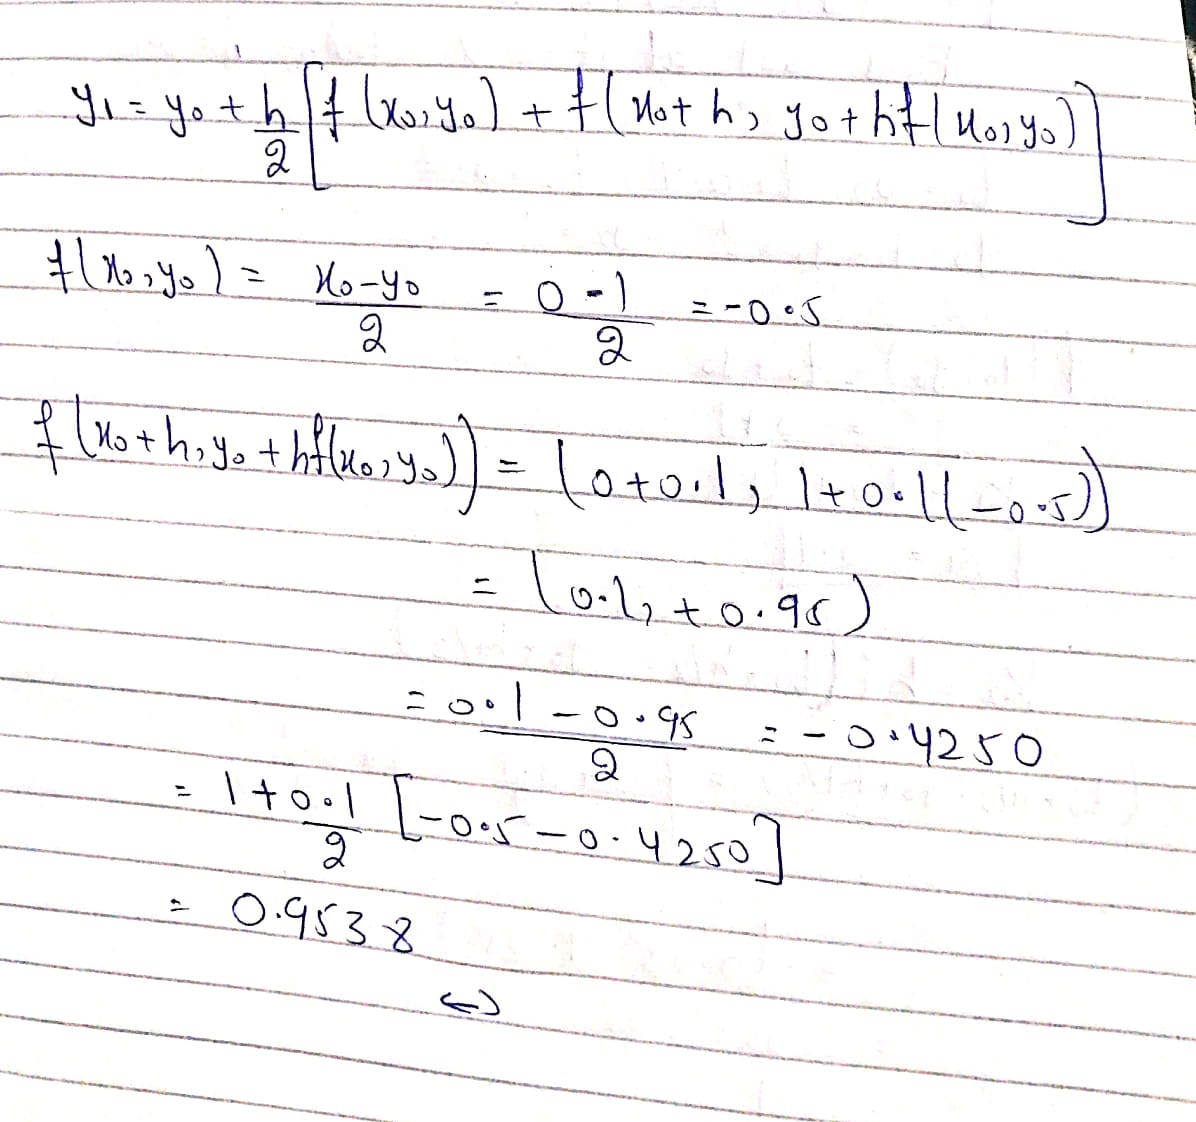 y₁ = y₀ + h/2 [f(x₀,y₀) + f(x₀+h, y₀+hf(x₀,y₀)]
f(x₀,y₀) = x₀-y₀/2 = 0-1/2 = -0.5
f(x₀+h,y₀+hf(x₀,y₀)) = (0+0.1, 1+0.1(-0.5))
= (0.1, +0.95)
= 0.1-0.95/2 = -0.4250
= 1+0.1/2 [-0.5-0.4250]
= 0.9538